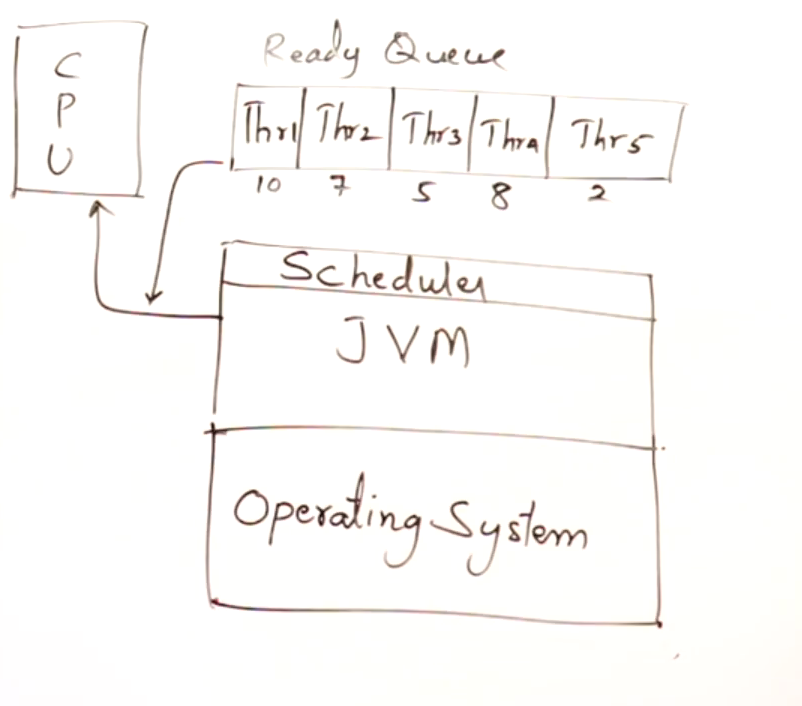 C
P
U
Ready Queue
Thr1 Thr2 Thr3 Thr4 Thr5
10 7 5 8 2
Scheduler
JVM
Operating System